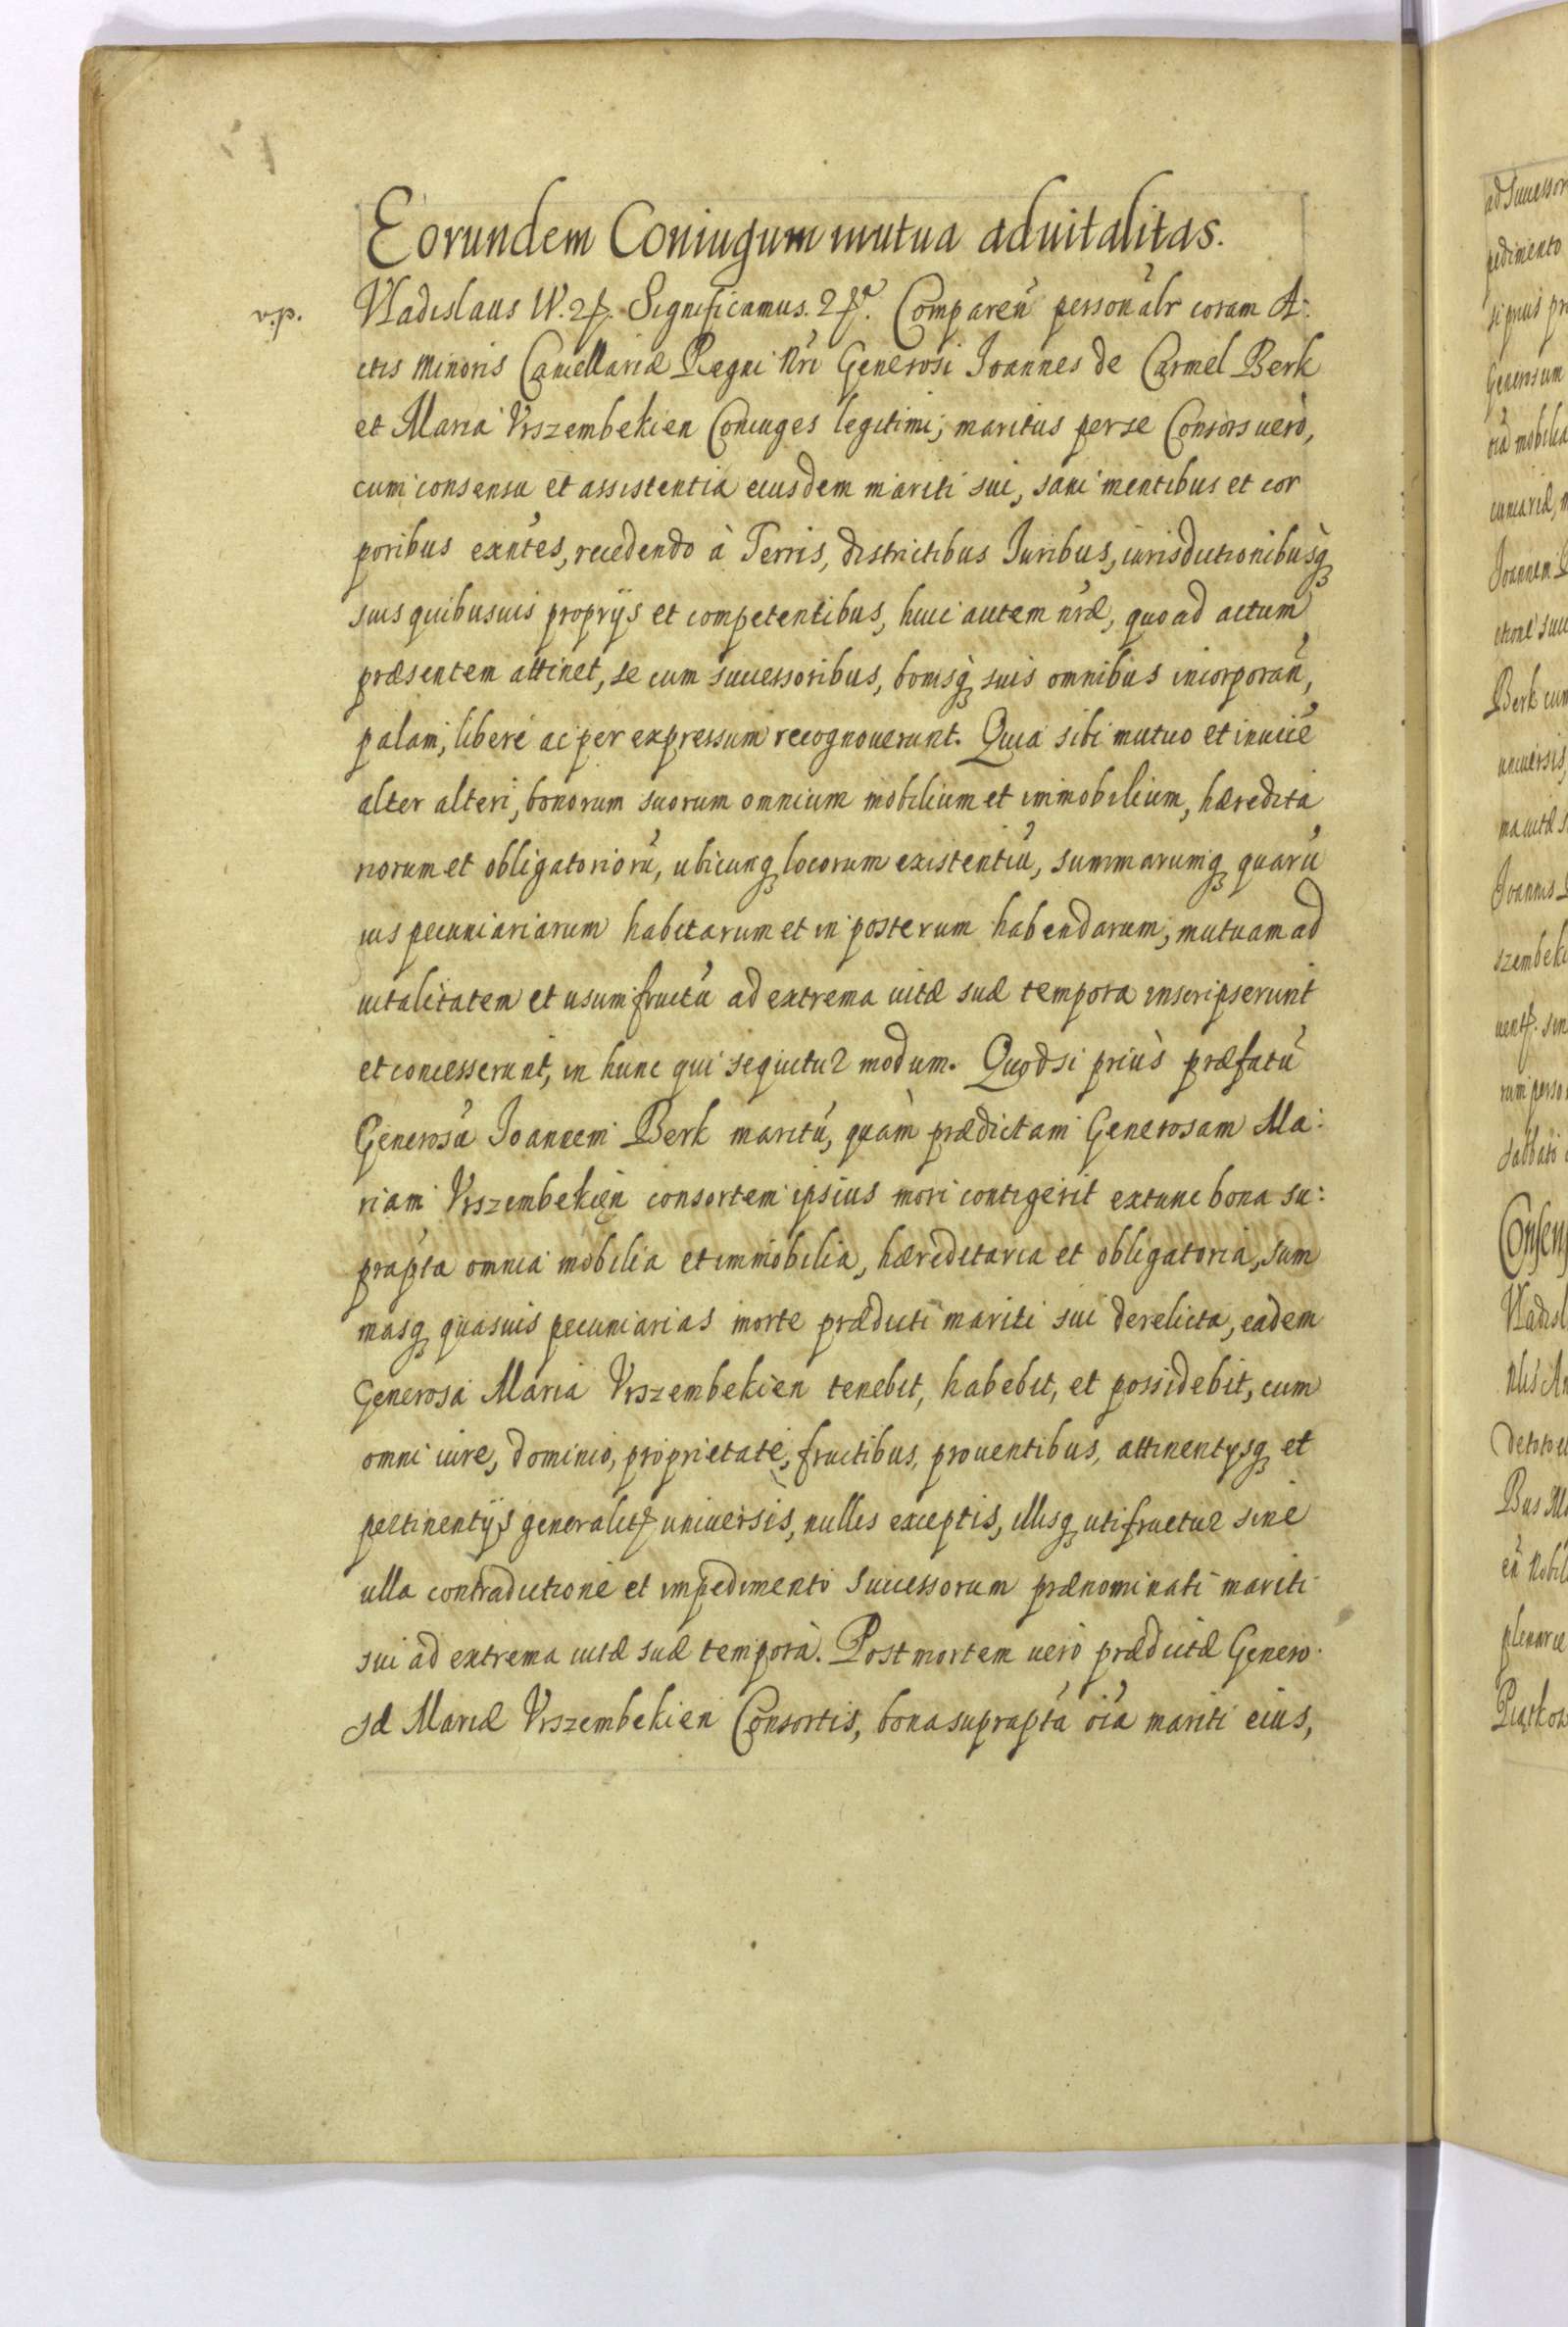 Eorundem Coniugum mutua aduitalitas.
Vladislaus IV. Significamus. Compareñ personalr coram A:
ctis minoris Cancellariæ Regni Nri Generosi Joannes de Carmel Berk
et Maria Vrszembekien Coniuges legitimi; maritus per se Consors uero,
cum consensu et assistentia eiusdem mariti sui, sani mentibus et cor
poribus exñtes, recedendo à Terris, districtibus Juribus, iurisdictionibusq
suis quibusuis proprijs et competentibus, huic autem nræ, quoad actum
præsentem attinet, se cum successoribus, bonisq suis omnibus incorporañ,
palam, libere ac per expressum recognouerunt. Quia sibi mutuo et inuicé
alter alteri, bonorum suorum omnium mobilium et immobilium, hæredita
riorum et obligatoriorú, ubicunq locorum existentiú, summarumq quarú
uis pecuniariarum habitarum et in posterum habendarum, mutuam ad
uitalitatem et usumfructú ad extrema uitæ suæ tempora inscripserunt
et concesserunt, in hunc qui sequitur modum. Quodsi priùs præfatú
Generosú Joannem Berk maritú, quàm prædictam Generosam Ma:
riam Vrszembekien consortem ipsius mori contigerit extunc bona su:
prapta omnia mobilia et immobilia, hæreditaria et obligatoria, sum
masq quasuis pecuniarias morte prædicti mariti sui derelicta, eadem
Generosa Maria Vrszembekien tenebit, habebit, et possidebit, cum
omni iure, dominio, proprietate, fructibus, prouentibus, attinentysq et
pertinentijs generalit uniuersis, nullis exceptis, illisq utifruetur sine
ulla contradictione et impedimento successorum prænominati mariti
sui ad extrema uitæ suæ tempora. Post mortem uero prædictæ Genero
sæ Mariæ Vrszembekien Consortis, bona suprapta oia mariti eius,
ad Successor
pedimento
si prius pr
Generosum
oia mobilia
cuniariæ, m
Joannem B
ctione succ
Berk cum
uniuersis,
ma uitæ s
Joannis B
szembeki
sin
rum perso
Sabbato
Consens
Vladisl
de toto
Bus
plenarie